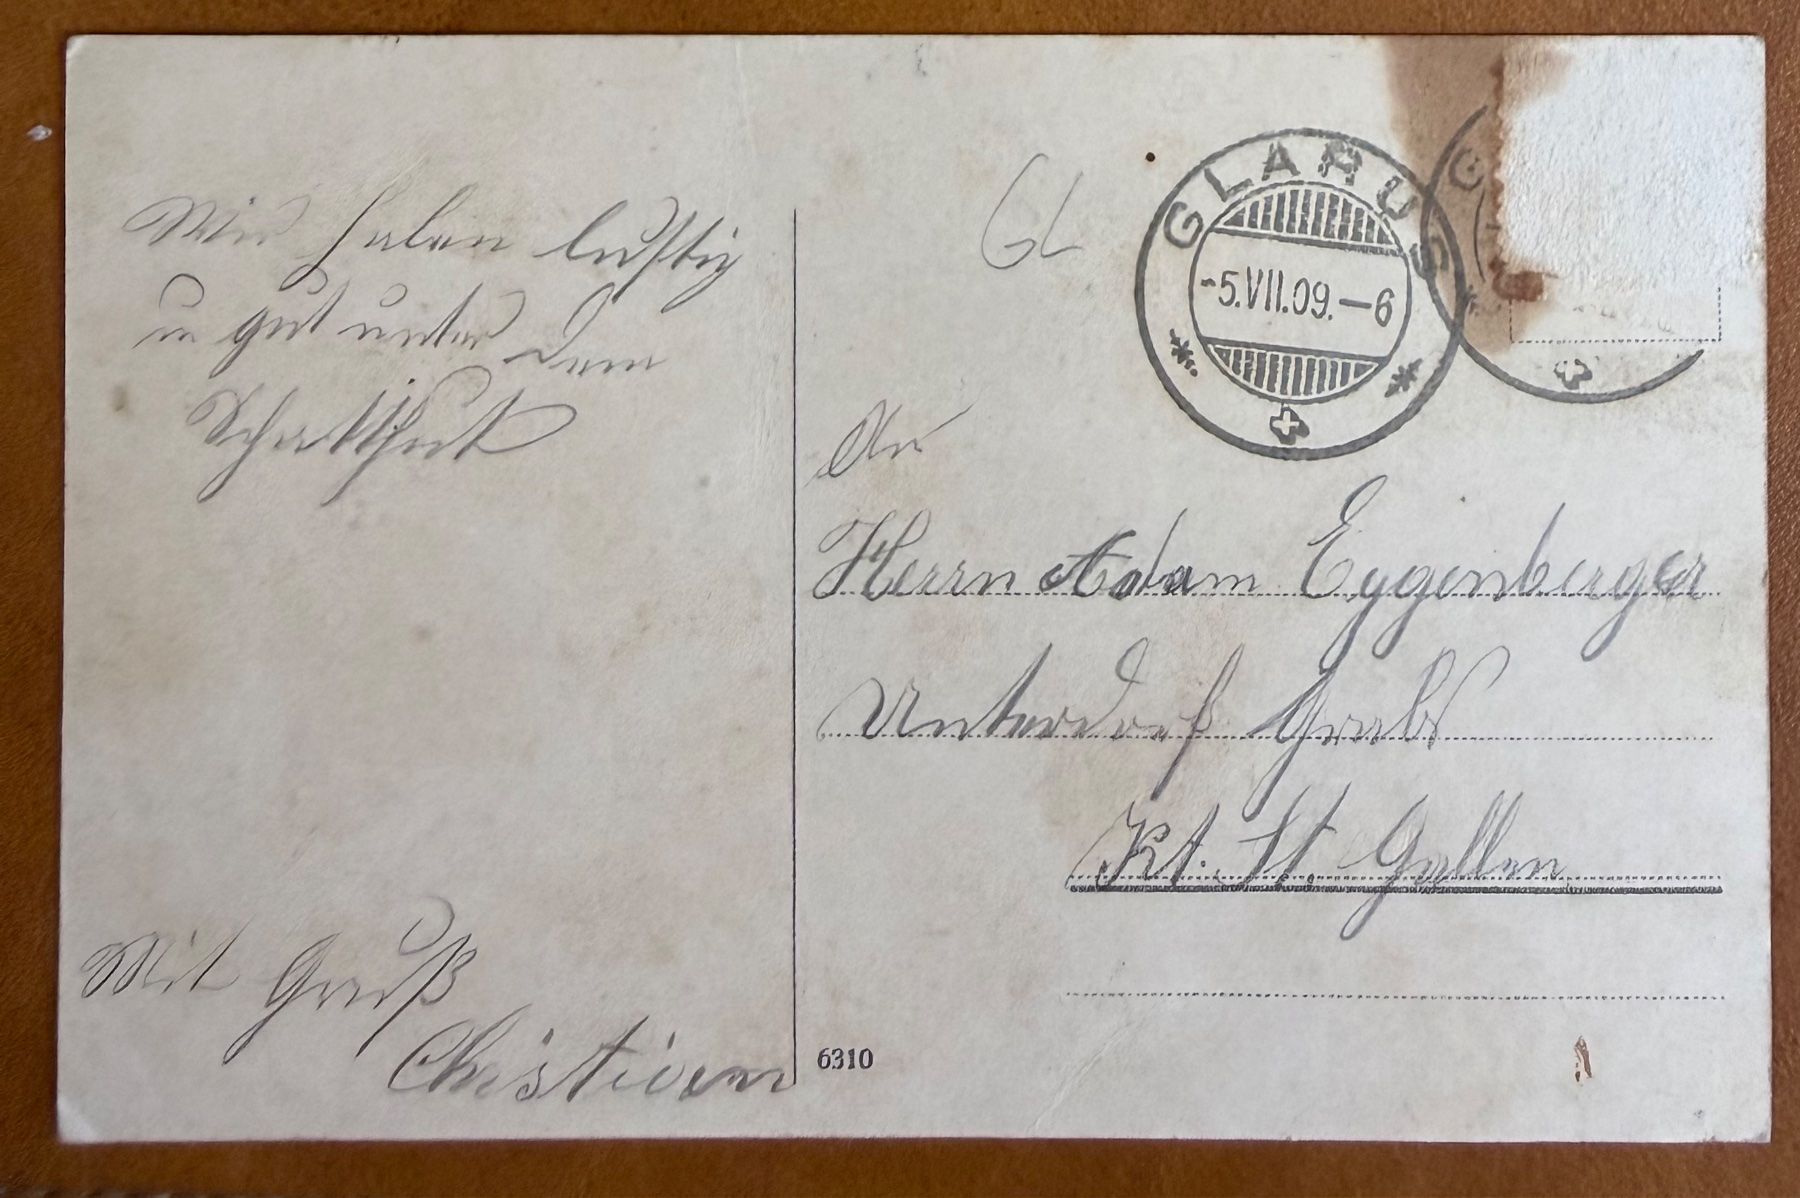 Wir haben lustig
u gut unter dem
Schatthut
Mit Gruß
Christian
GL
GLARUS
-5.VII.09.-6
An
Herrn Adam Eggenberger
Unterdorf Grabs
Kt. St. Gallen
6310